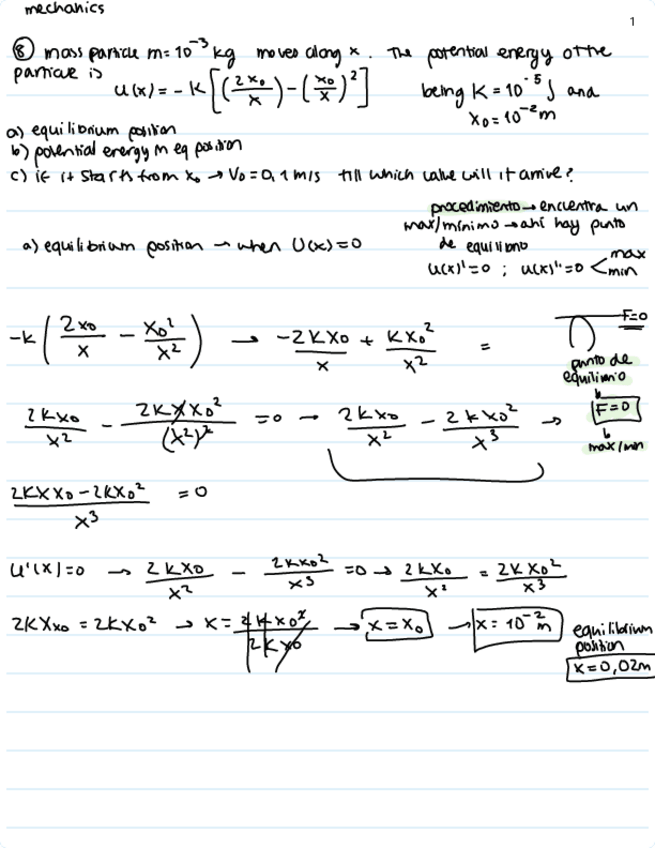 mechanics
1
⑧ mass particle m=10⁻³ kg moves along x. The potential energy of the
particle is
u(x) = -k[(2x₀/x) - (x₀/x)²] being K = 10⁻⁵ J and
x₀ = 10⁻² m
a) equilibrium position
b) potential energy in eq position
c) if it starts from x₀ → V₀ = 0,1 m/s till which value will it arrive?
procedimiento → encuentra un
max/mínimo → ahí hay punto
de equilibrio
u(x)' = 0 ; u(x)'' = 0 < max
min
a) equilibrium position → when U(x) = 0
-k(2x₀/x - x₀²/x²) → -2kx₀/x + kx₀²/x² =
F=0
punto de
equilibrio
F=0
max/min
2kx₀/x² - 2kxx₀²/(x²)² = 0 → 2kx₀/x² - 2kx₀²/x³ →
2kxx₀ - 2kx₀²/x³ = 0
u'(x) = 0 → 2kx₀/x² - 2kx₀²/x³ = 0 → 2kx₀/x² = 2kx₀²/x³
2kxx₀ = 2kx₀² → x = 2kx₀²/2kx₀ → x = x₀ → x = 10⁻² m
equilibrium
position
x = 0,02m